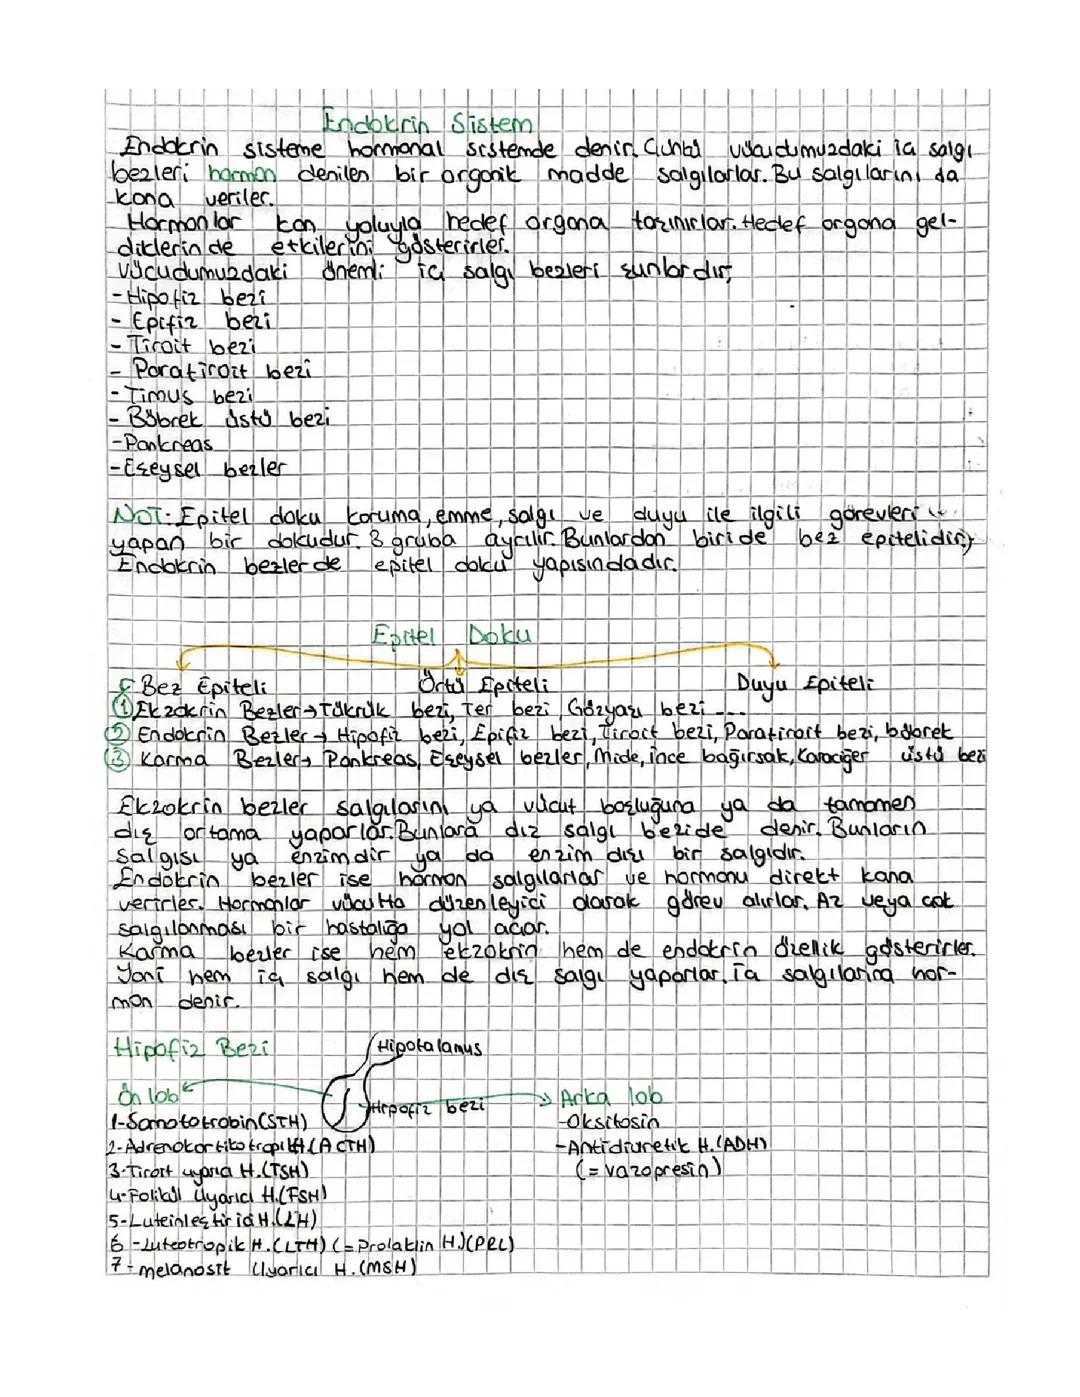 Endokrin Sistem
Endokrin sisteme hormonal sistemde denir. Çünkü vücudumuzdaki iç salgı
bezleri hormon denilen bir organik madde salgılarlar. Bu salgılarını da
kana verirler.
Hormonlar kan yoluyla hedef organa taşınırlar. Hedef organa gel-
diklerinde etkilerini gösterirler.
Vücudumuzdaki önemli iç salgı bezleri şunlardır;
-Hipofiz bezi
- Epifiz bezi
- Tiroit bezi
- Paratiroit bezi
-Timus bezi
- Böbrek üstü bezi
-Pankreas
-Eşeysel bezler
NOT: Epitel doku koruma, emme, salgı ve duyu ile ilgili görevleri
yapan bir dokudur. 3 gruba ayrılır. Bunlardan biride bez epitelidir)
Endokrin bezlerde epitel doku yapısındadır.
Epitel Doku
Bez Epiteli Örtü Epiteli Duyu Epiteli
1 Ekzokrin Bezler→Tükrük bezi, Ter bezi, Gözyaşı bezi ...
2 Endokrin Bezler→ Hipofiz bezi, Epifiz bezi, Tiroit bezi, Paratiroit bezi, böbrek
üstü bezi
3 Karma Bezler→ Pankreas, Eşeysel bezler, Mide, ince bağırsak, Karaciğer
Ekzokrin bezler salgılarını ya vücut boşluğuna ya da tamamen
dış ortama yaparlar. Bunlara dış salgı bezide denir. Bunların
salgısı ya enzimdir ya da enzim dışı bir salgıdır.
Endokrin bezler ise hormon salgılarlar ve hormonu direkt kana
verirler. Hormonlar vücutta düzenleyici olarak görev alırlar. Az veya çok
salgılanması bir hastalığa yol açar.
Karma bezler ise hem ekzokrin hem de endokrin özellik gösterirler.
Yani hem iç salgı hem de dış salgı yaparlar. İç salgılarına hor-
mon denir.
Hipofiz Bezi
Hipotalamus
Hipofiz bezi
Ön lob
1-Somototrobin(STH)
2-Adrenokortikotropik H.(ACTH)
3-Tiroit uyarıcı H.(TSH)
4-Folikül Uyarıcı H.(FSH)
5-Luteinleştirici H.(LH)
6 -Luteotropik H.(LTH) (= Prolaktin H.)(PRL)
7 -melanosit Uyarıcı H.(MSH)
Arka lob
-Oksitosin
-Antidiuretik H.(ADH)
(= vazopresin)